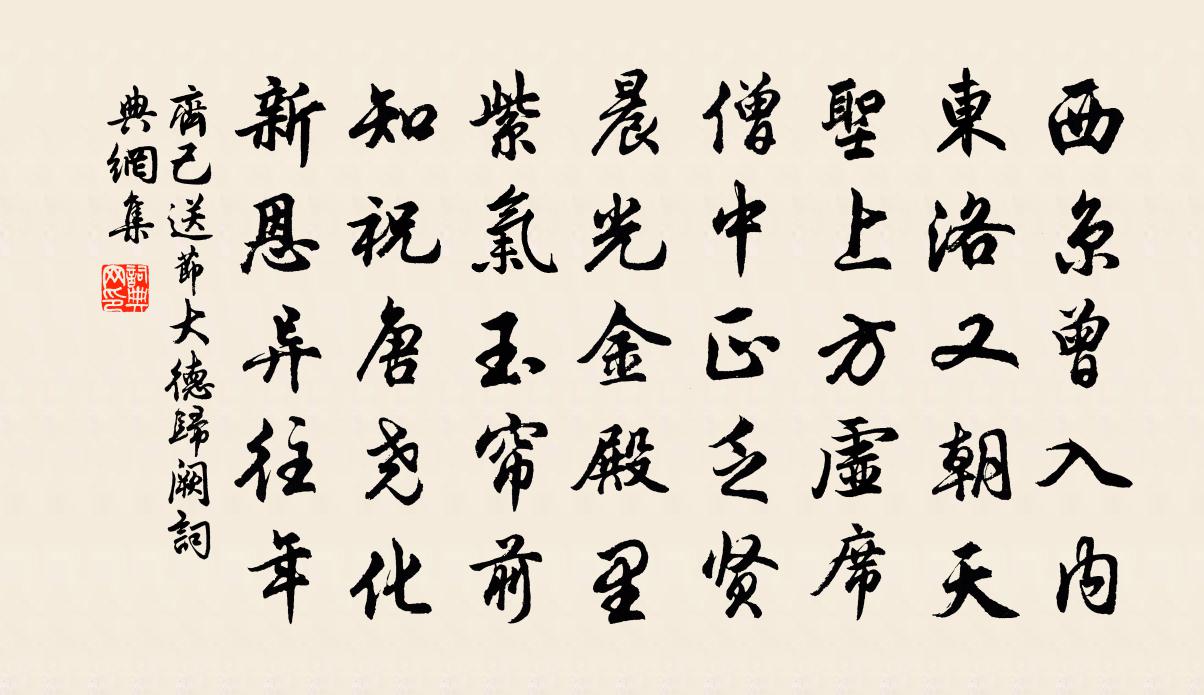 西京曾入内
東洛又朝天
聖上方虛席
僧中正乏贤
晨光金殿里
紫氣玉帘前
知祝唐尧化
新恩异往年
齊己送節大德歸闕詞
典網集
詞典网印